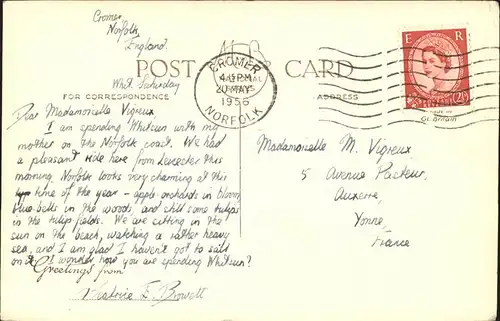 Cromer,
Norfolk,
England.
Whit. Saturday
POST CARD
FOR CORRESPONDENCE
ADDRESS
CROMER
4-15PM
20 MAY
1956
NORFOLK
E R
POSTAGE
2½D
Gt. Britain
Dear Madamoiselle Vigreux
I am spending Whitsun with my
mother on the Norfolk coast. We had
a pleasant ride here from Leicester this
morning. Norfolk looks very charming at this
time of the year – apple orchards in bloom,
blue-bells in the woods, and still some tulips
in the tulip fields. We are sitting in the
sun on the beach, watching a rather heavy
sea, and I am glad I haven't got to sail
on it! I wonder how you are spending Whitsun?
Greetings from
Beatrice E. Browett
Madamoiselle M. Vigreux
5 Avenue Pasteur,
Auxerre,
Yonne,
France